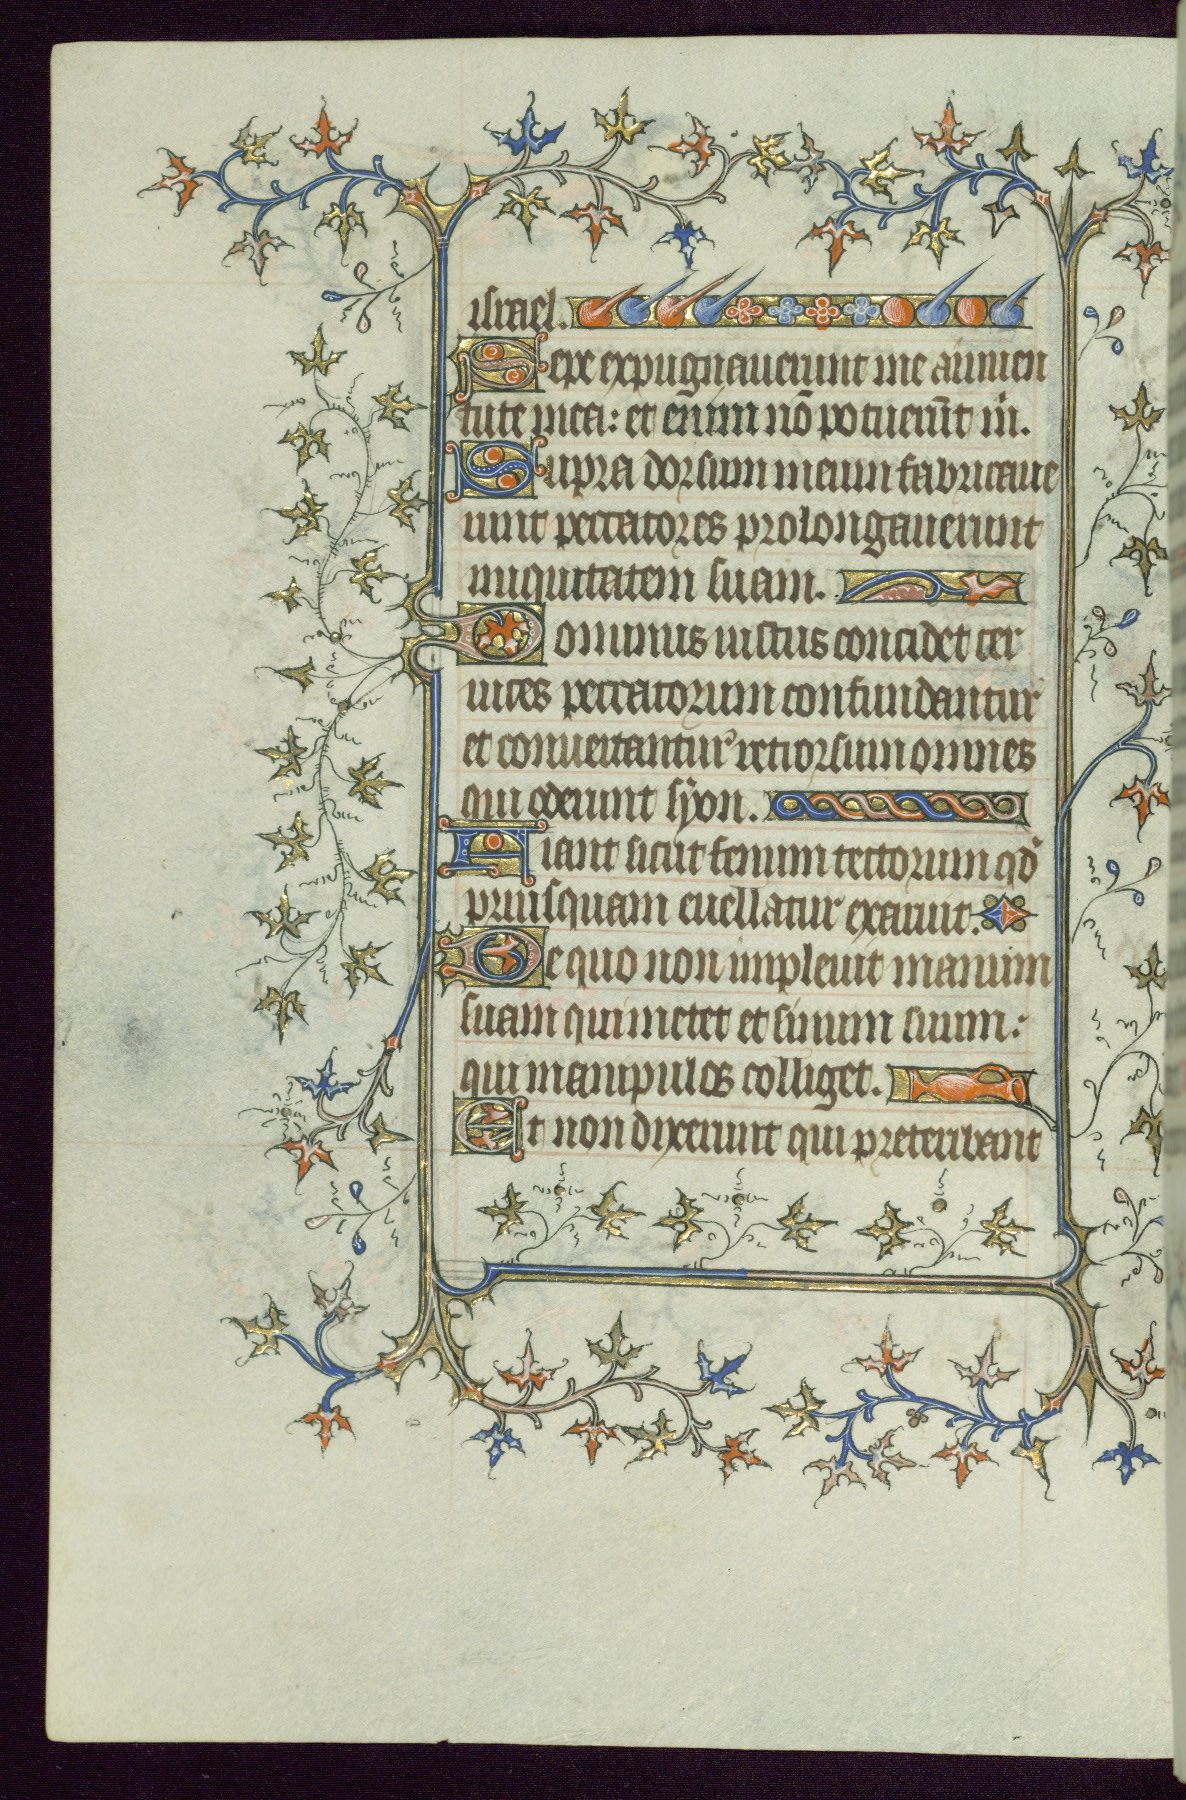 israel.
Sepe expugnauerunt me a iuuen
tute mea: et enim nō potuerūt m̄.
Supra dorsum meum fabricaue
runt peccatores prolongauerunt
iniquitatem suam.
Dominus iustus concidet cer
uices peccatorum confundantur
et conuertantur retrorsum omnes
qui oderunt syon.
Fiant sicut fenum tectorum qd̄
priusquam euellatur exaruit.
De quo non impleuit manum
suam qui metet et sinum suum:
qui manipulos colliget.
Et non dixerunt qui preteribant